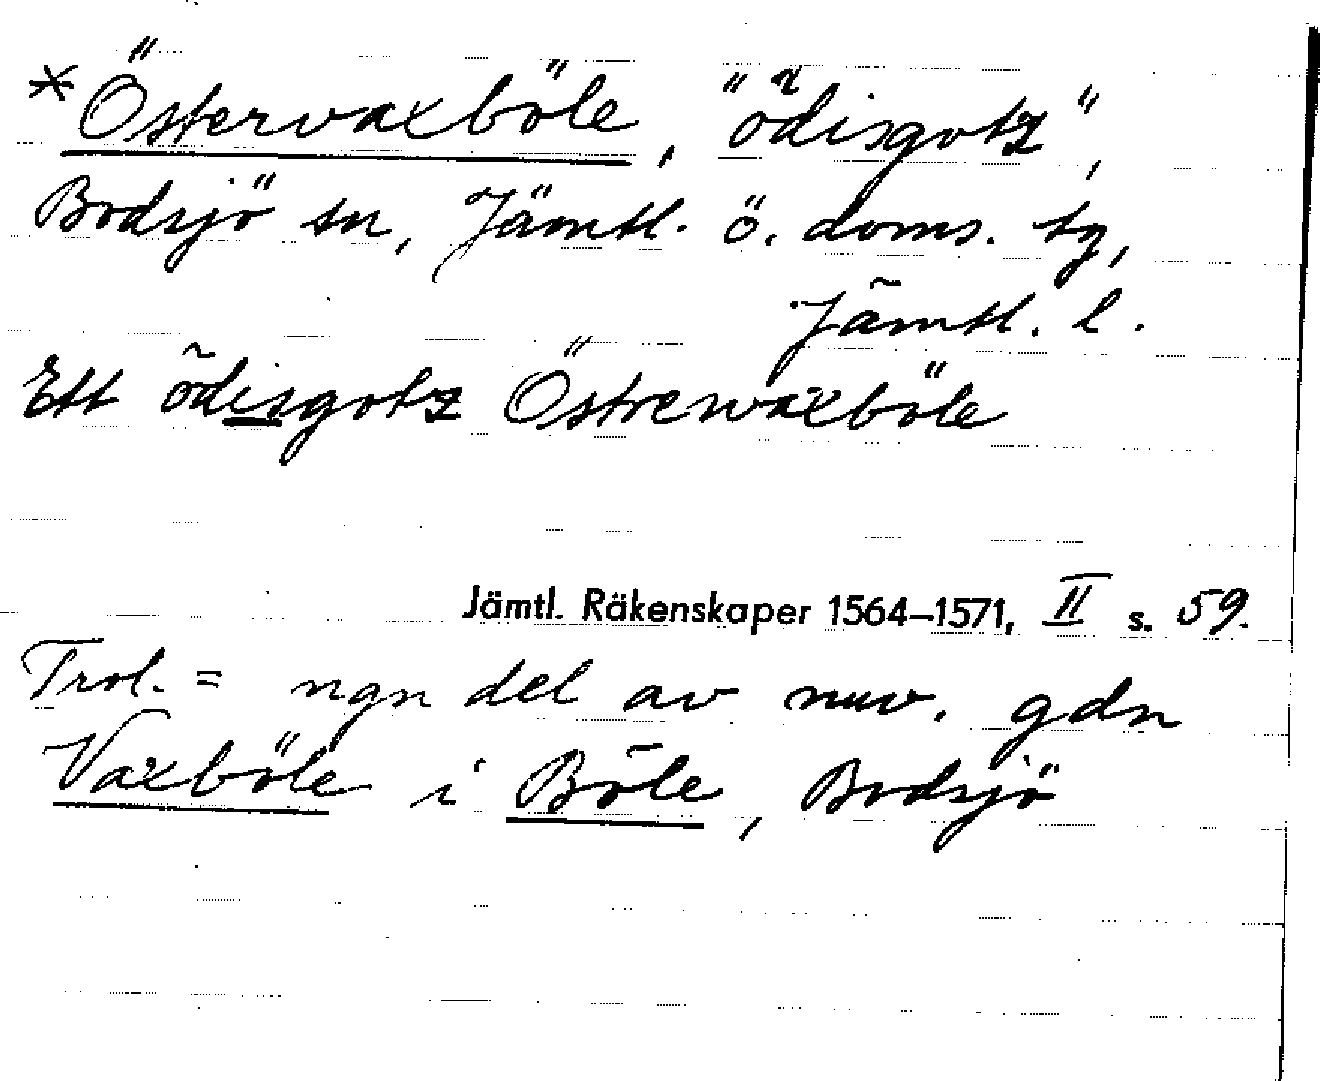 *Östervaxböle, "ödisgotz",
Bodsjö sn, Jämtl. ö. doms. tg,
Jämtl. l.
Ett ödisgotz Östrewaxböle
Jämtl. Räkenskaper 1564–1571, II s. 59.
Trol. = ngn del av nuv. gdn
Vaxböle i Böle, Bodsjö